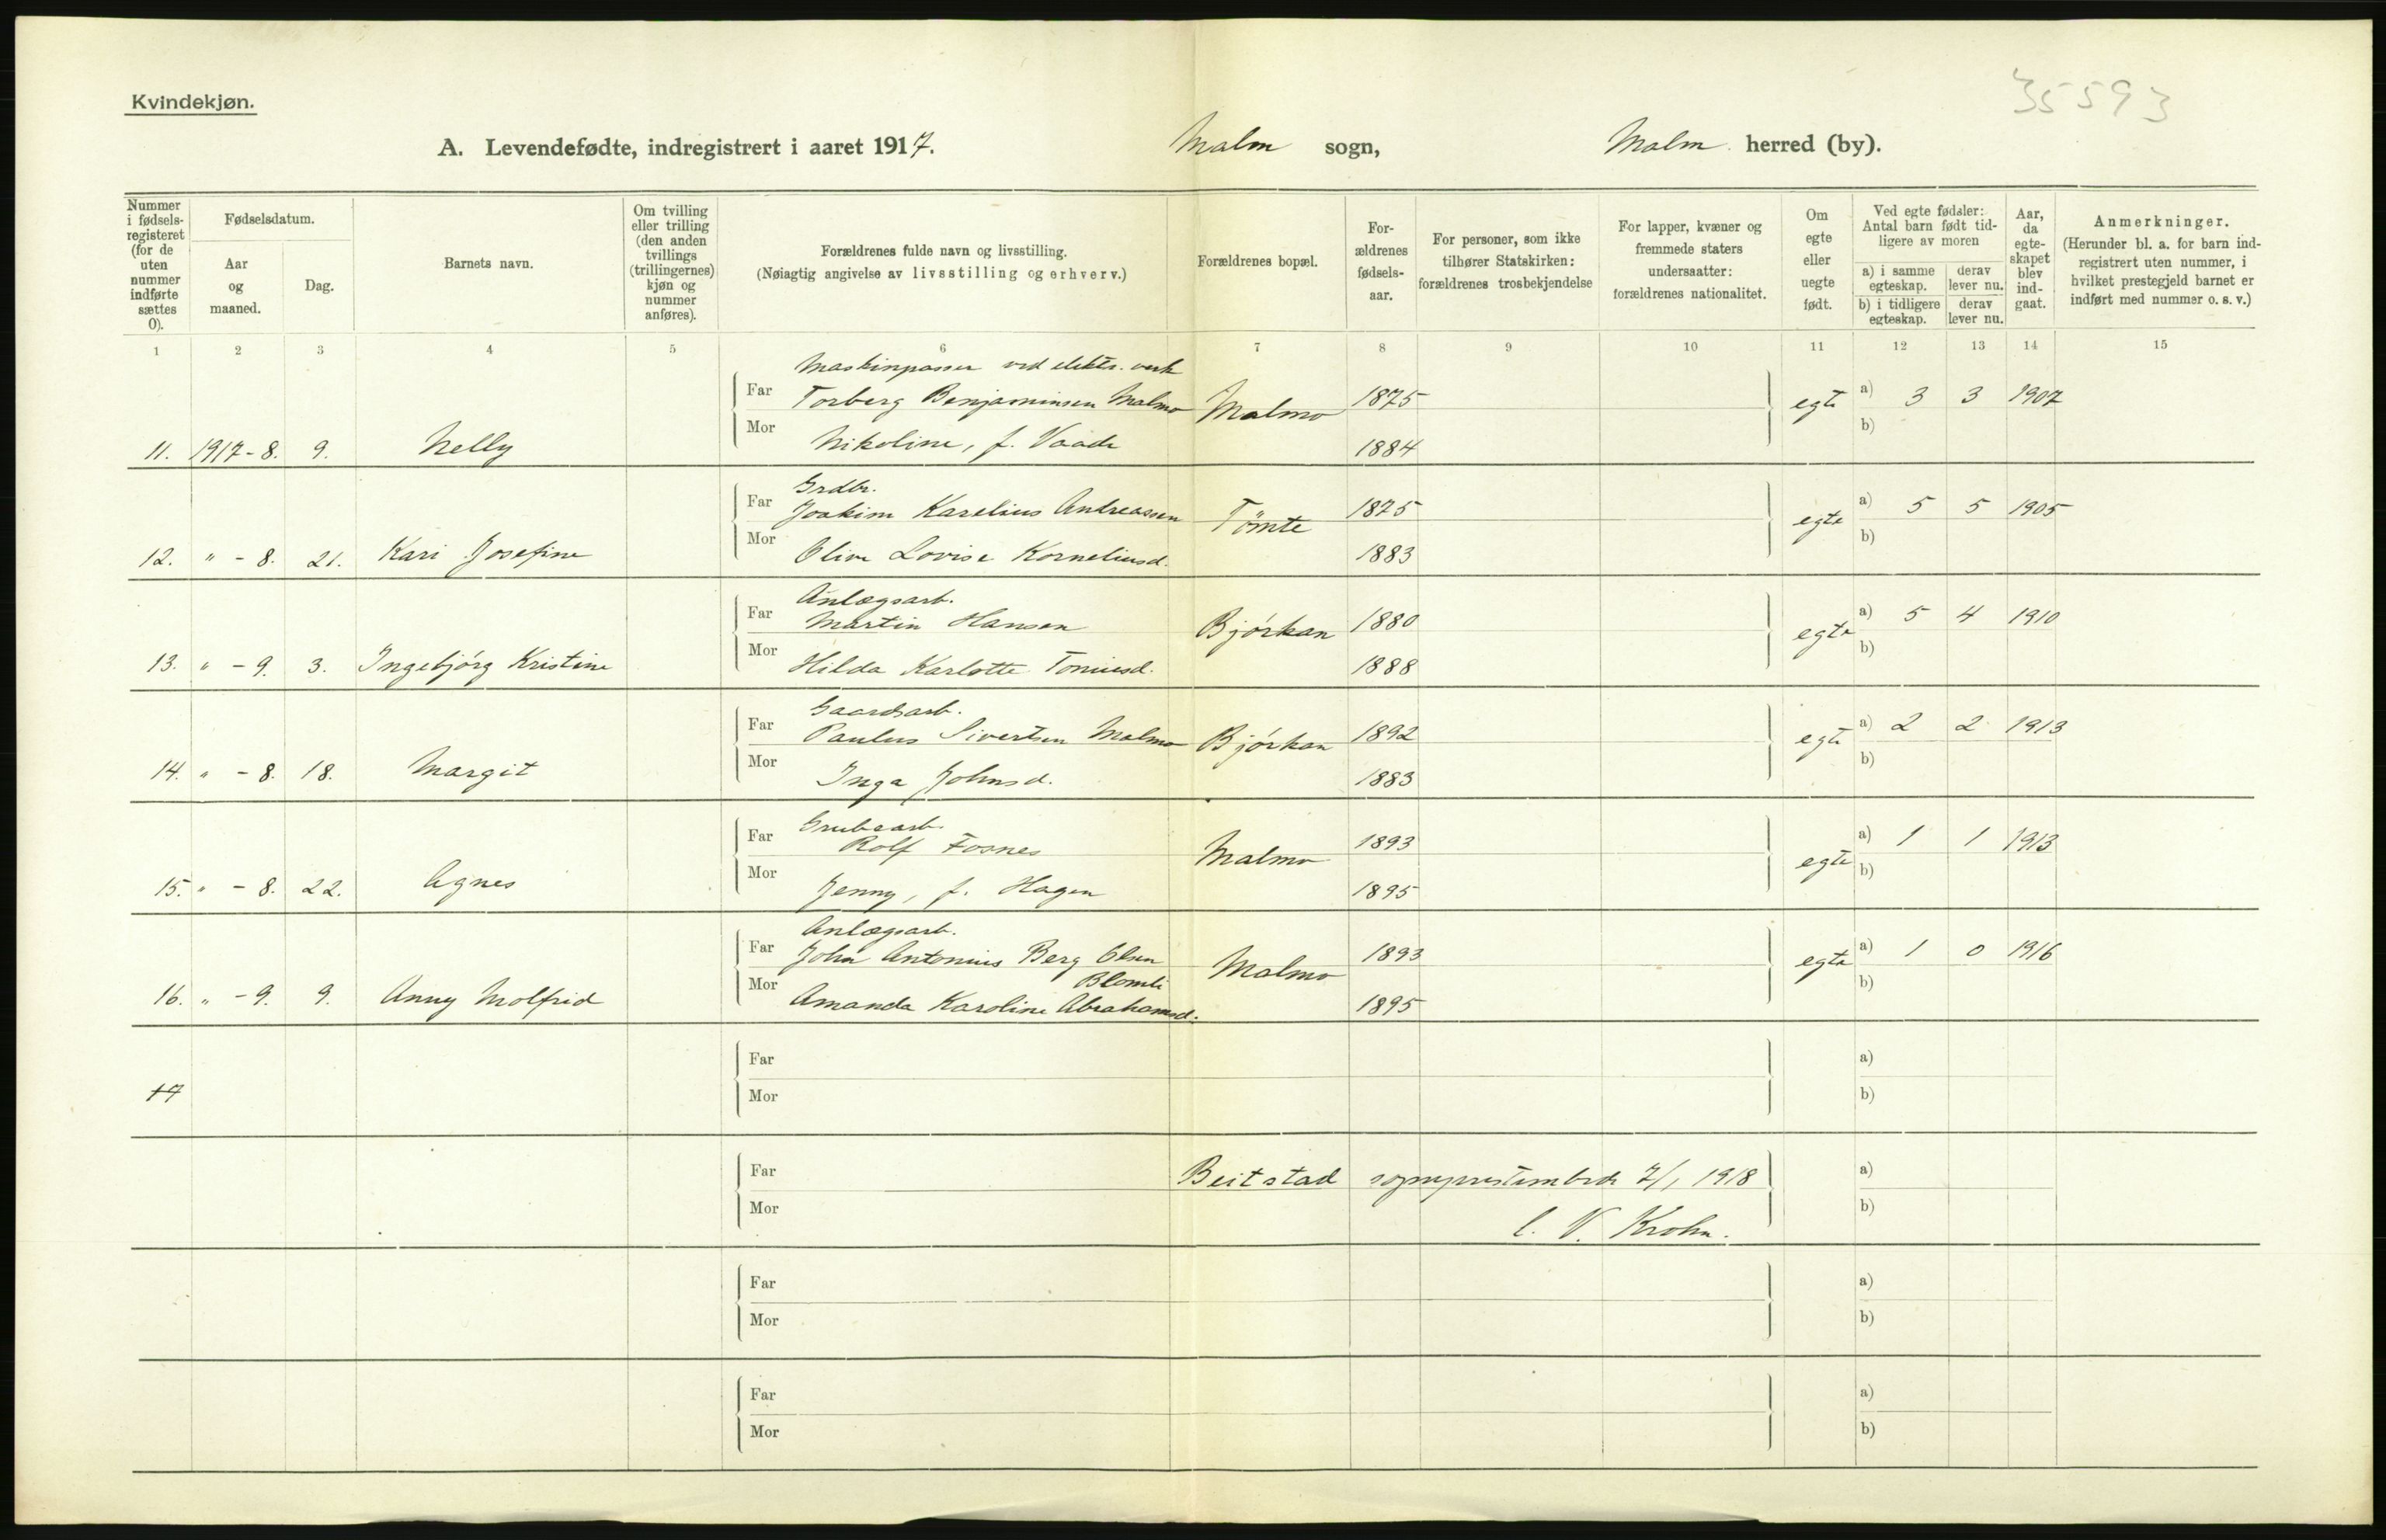 35593
Kvindekjøn.
A. Levendefødte, indregistrert i aaret 1917. Malm sogn, Malm herred (by).
Nummer i fødselsregisteret (for de uten nummer indførte sættes 0).
Fødselsdatum.
Aar og maaned.
Dag.
Barnets navn.
Om tvilling eller trilling (den anden tvillings (trillingernes) kjøn og nummer anføres).
Forældrenes fulde navn og livsstilling.
(Nøiagtig angivelse av livsstilling og erhverv.)
Forældrenes bopæl.
Forældrenes fødselsaar.
For personer, som ikke tilhører Statskirken: forældrenes trosbekjendelse
For lapper, kvæner og fremmede staters undersaatter: forældrenes nationalitet.
Om egte eller uegte født.
Ved egte fødsler: Antal barn født tidligere av moren
a) i samme egteskap. derav lever nu.
b) i tidligere egteskap. derav lever nu.
Aar, da egteskapet blev indgaat.
Anmerkninger.
(Herunder bl. a. for barn indregistrert uten nummer, i hvilket prestegjeld barnet er indført med nummer o. s. v.)
1 2 3 4 5 6 7 8 9 10 11 12 13 14 15
Maskinpasser ved elektr. verk
Far Torberg Benjaminsen Malmo Malmo 1875 egte a) 3 3 1907
Mor b)
11. 1917-8. 9. Nelly Nikoline, f. Vaade 1884
Grdbr.
Far Joakim Karelius Andreassen Tömte 1875 egte a) 5 5 1905
Mor b)
12. " - 8. 21. Kari Josefine Olive Lovise Korneliusd. 1883
Anlægsarb.
Far Martin Hansen Bjørkan 1880 egte a) 5 4 1910
Mor b)
13. " - 9. 3. Ingebjørg Kristine Hilda Karlotte Toniusd. 1888
Gaardsarb.
Far Paulus Sivertsen Malmo Bjørkan 1892 egte a) 2 2 1913
Mor b)
14. " - 8. 18. Margit Inga Johnsd. 1883
Grubearb.
Far Rolf Fosnes Malmo 1893 egte a) 1 1 1913
Mor b)
15. " - 8. 22. Agnes Jenny, f. Hagen 1895
Anlægsarb.
Far John Antonius Berg Olsen Malmo 1893 egte a) 1 0 1916
Blomli
Mor b)
16. " - 9. 9. Anny Molfrid Amanda Karoline Abrahamsd. 1895
Far a)
17
Mor b)
Far Beitstad sogneprestembede 7/1 1918 a)
Mor b)
C. V. Krohn.
Far a)
Mor b)
Far a)
Mor b)